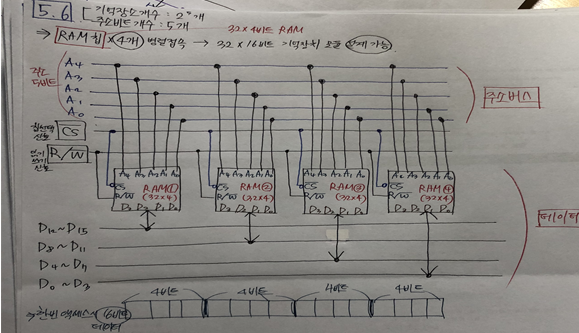 5.6
기억장소개수 : 2⁵개
주소비트개수 : 5개
⇒ RAM칩 × 4개 병렬접속 → 32 × 16비트 기억장치 모듈
32×4비트 RAM
A4
A3
A2
A1
A0
주소
5비트
주소버스
칩선택
신호
CS
R/W
신호
A4 A3 A2 A1 A0
CS
R/W
RAM①
(32×4)
D3 D2 D1 D0
A4 A3 A2 A1 A0
CS
R/W
RAM②
(32×4)
D3 D2 D1 D0
A4 A3 A2 A1 A0
CS
R/W
RAM③
(32×4)
D3 D2 D1 D0
A4 A3 A2 A1 A0
CS
R/W
RAM④
(32×4)
D3 D2 D1 D0
데이터
D12~D15
D8~D11
D4~D7
D0~D3
4비트 4비트 4비트 4비트
→ 한번 액세스 → 16비트
데이터